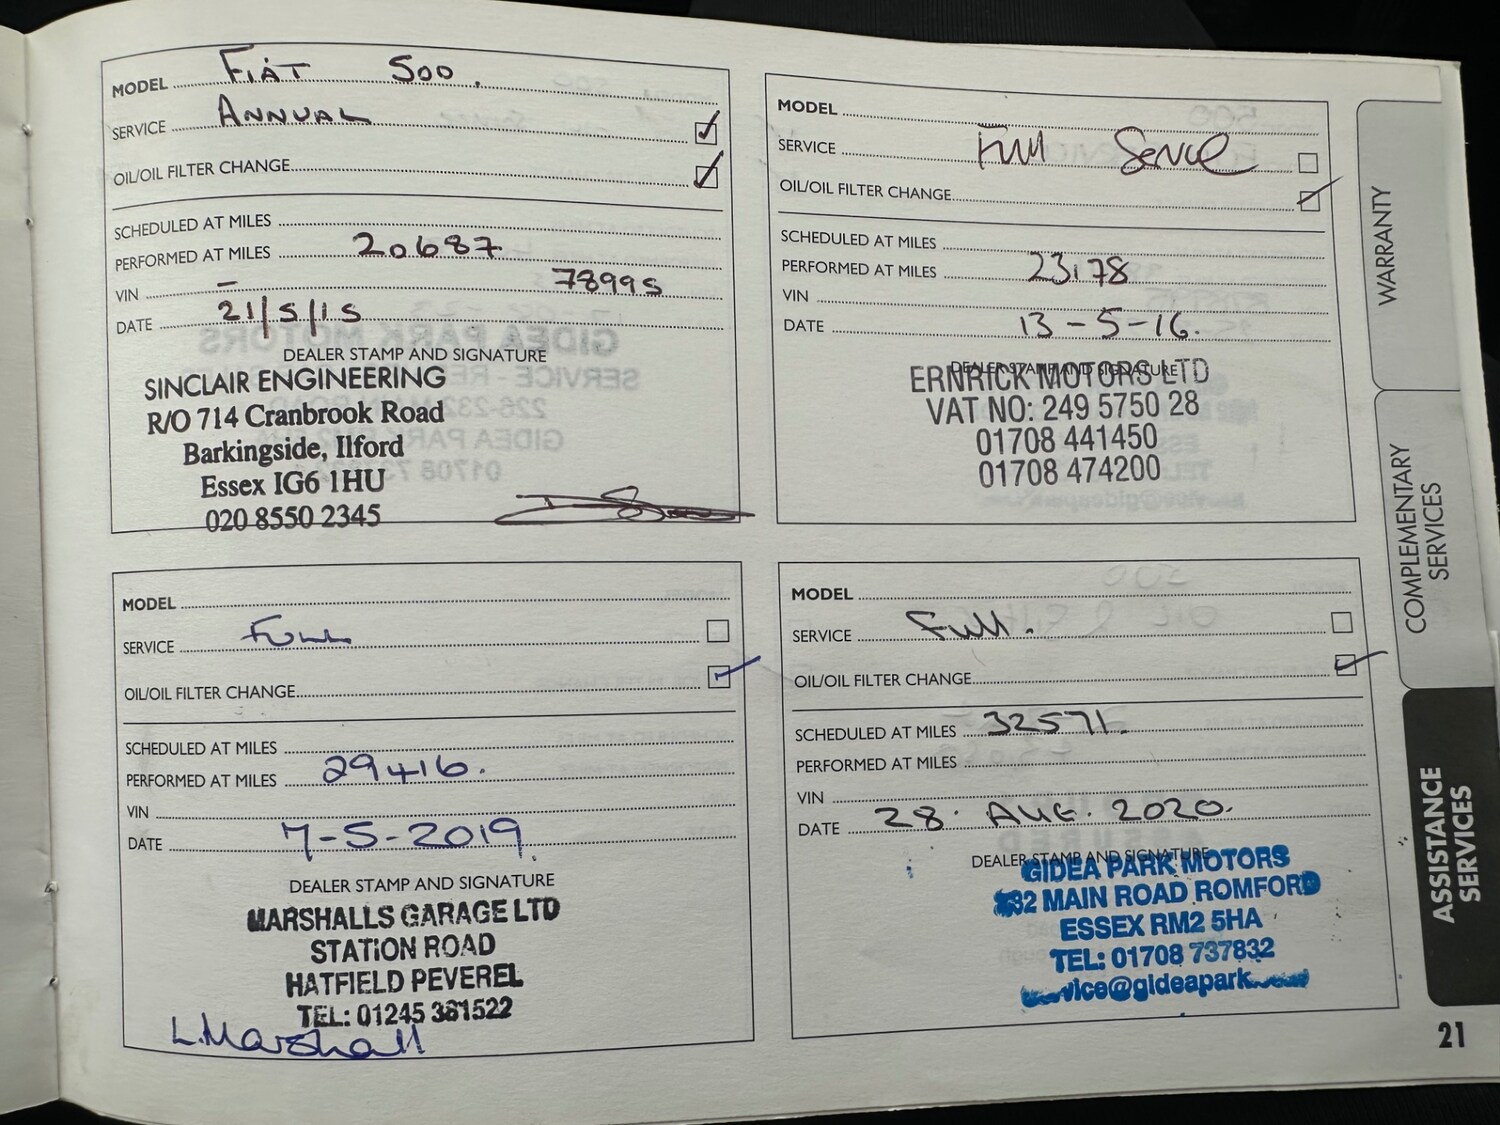 MODEL Fiat 500.
SERVICE Annual
OIL/OIL FILTER CHANGE
SCHEDULED AT MILES
PERFORMED AT MILES 20687
VIN – 78995
DATE 21/5/15
DEALER STAMP AND SIGNATURE
SINCLAIR ENGINEERING
R/O 714 Cranbrook Road
Barkingside, Ilford
Essex IG6 1HU
020 8550 2345
MODEL
SERVICE Full Service
OIL/OIL FILTER CHANGE
SCHEDULED AT MILES
PERFORMED AT MILES 23178
VIN
DATE 13-5-16.
DEALER STAMP AND SIGNATURE
ERNRICK MOTORS LTD
VAT NO: 249 5750 28
01708 441450
01708 474200
MODEL
SERVICE Full
OIL/OIL FILTER CHANGE
SCHEDULED AT MILES
PERFORMED AT MILES 29416.
VIN
DATE 7-5-2019.
DEALER STAMP AND SIGNATURE
MARSHALLS GARAGE LTD
STATION ROAD
HATFIELD PEVEREL
TEL: 01245 381522
L. Marshall
MODEL
SERVICE Full.
OIL/OIL FILTER CHANGE
SCHEDULED AT MILES 32571.
PERFORMED AT MILES
VIN
DATE 28. AUG. 2020.
DEALER STAMP AND SIGNATURE
GIDEA PARK MOTORS
MAIN ROAD ROMFORD
ESSEX RM2 5HA
TEL: 01708 737832
WARRANTY
COMPLEMENTARY
SERVICES
ASSISTANCE
SERVICES
21